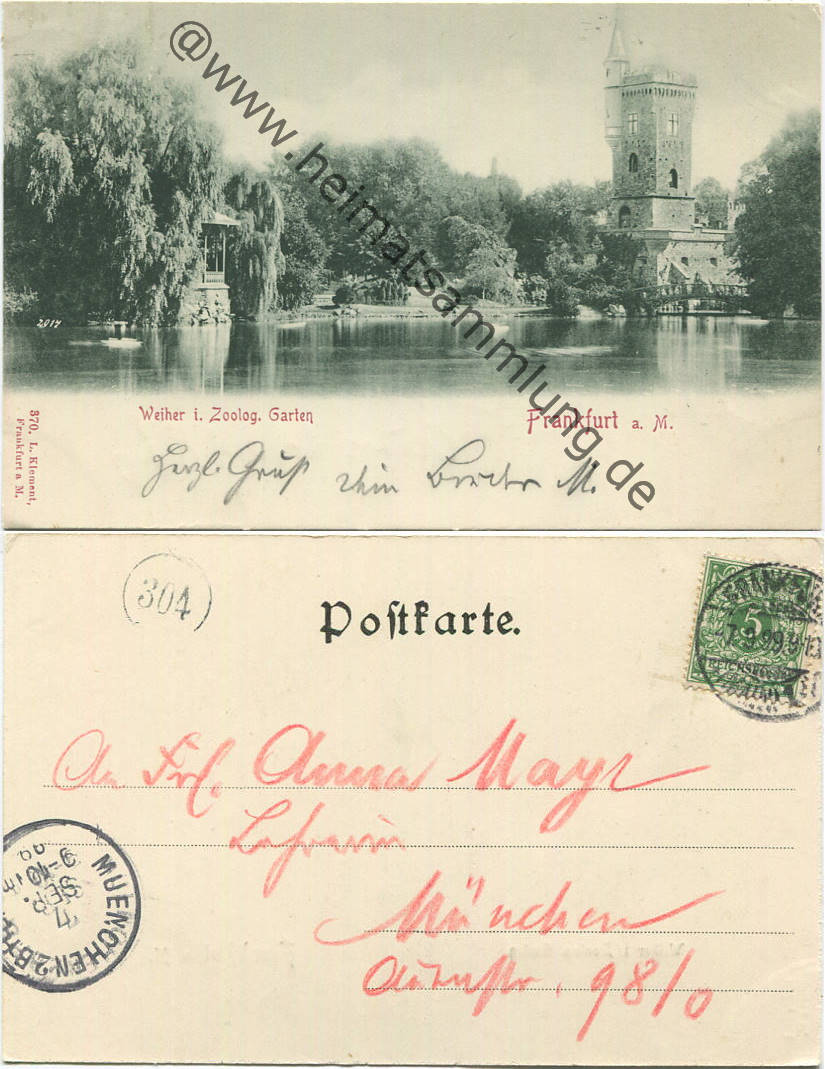 @www.heimatsammlung.de
2017
Weiher i. Zoolog. Garten
Frankfurt a. M.
370. L. Klement,
Frankfurt a M.
Herzl. Gruß Dein Bruder M.
304
Postkarte.
5
REICHSPOST
An Frl. Anna Mayr
Lehrerin
München
98/0
MUENCHEN 2 B.
7
SEP.
9-10
99